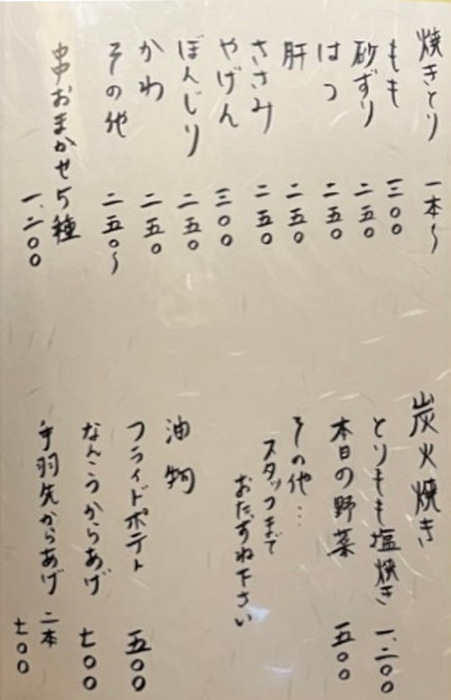 焼きとり 一本〜
もも 三〇〇
砂ずり 二五〇
はつ 二五〇
肝 二五〇
ささみ 二五〇
やげん 三〇〇
ぼんじり 二五〇
かわ 二五〇
その他 二五〇〜
串おまかせ5種 一、二〇〇
炭火焼き
とりもも塩焼き 一、二〇〇
本日の野菜 五〇〇
その他…
スタッフまで
おたずね下さい
油物
フライドポテト 五〇〇
なんこつからあげ 七〇〇
手羽先からあげ 二本 七〇〇